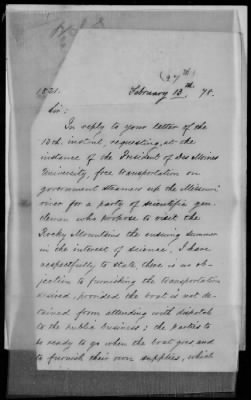 (27th)
1821. February 13th, 78.
Sir:
In reply to your letter of the
13th. instant, requesting, at the
instance of the President of Des Moines
University, free transportation on
government steamer up the Missouri
river for a party of scientific gen-
tlemen who propose to visit the
Rocky Mountains the ensuing summer
in the interest of science, I have
respectfully to state, there is no ob-
jection to furnishing the transportation
desired, provided the boat is not de-
tained from attending with dispatch
to the public business; the parties to
be ready to go when the boat goes and
to furnish their own supplies, which